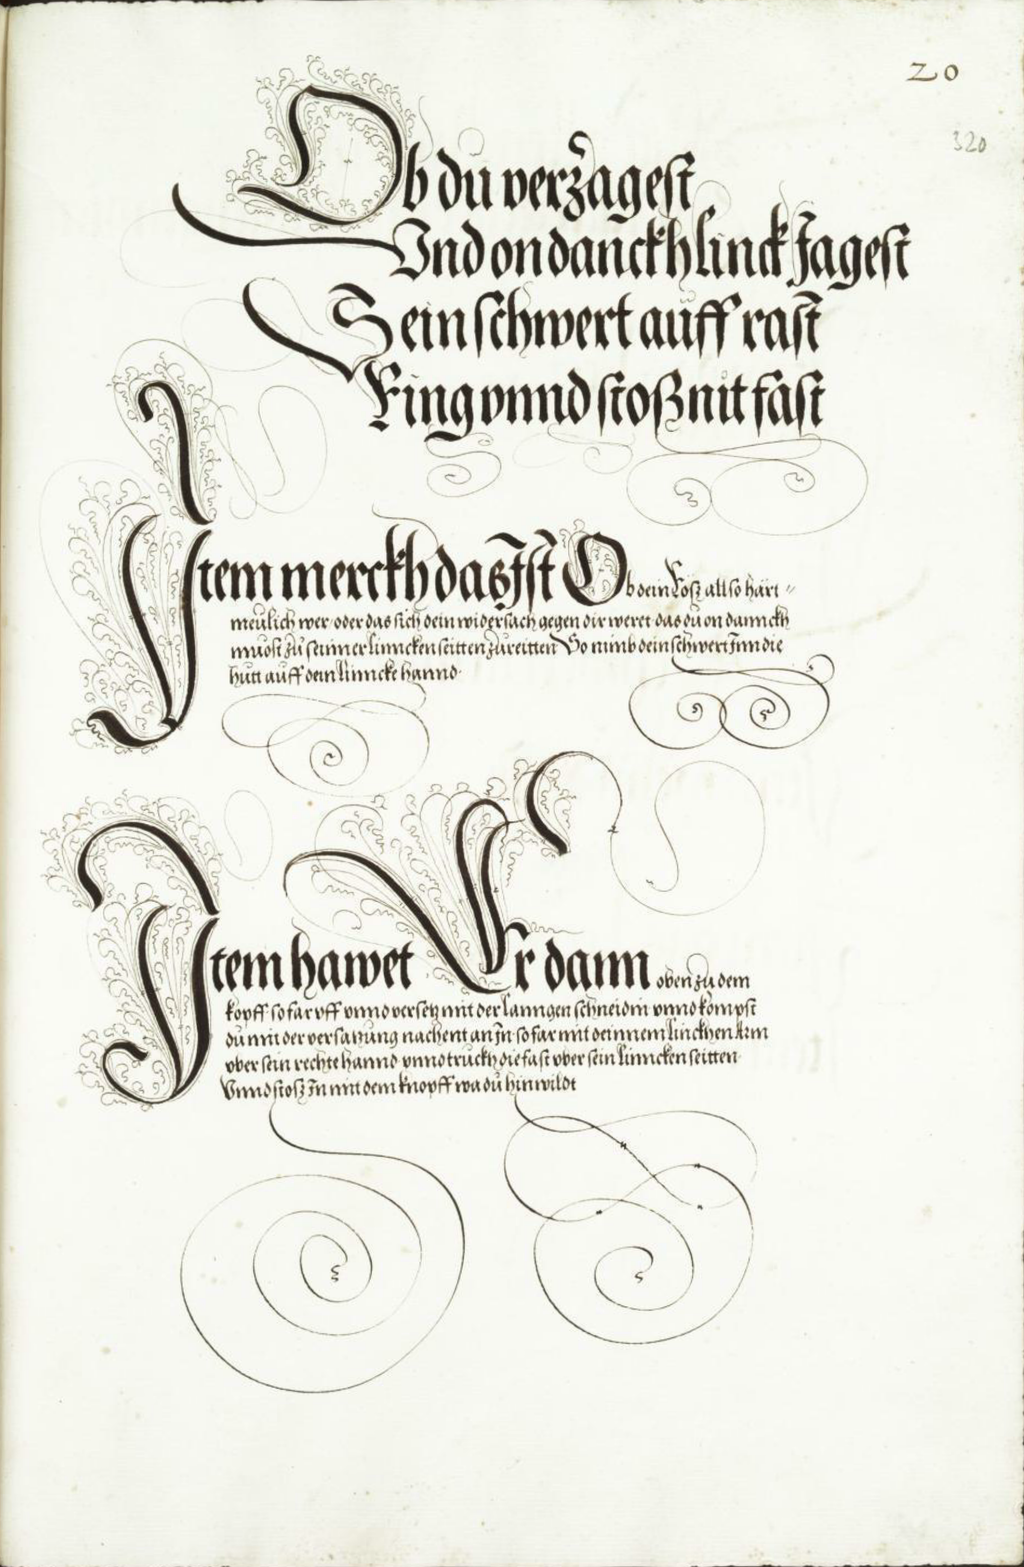 20
320
Ob du verzagest
Vnd on danckh linck Jagest
Sein schwert auff rast
Ring vnnd stoß nit fast
Item merckh das Ist Ob dein Roß allso hart=
meulich wer oder das sich dein widersach gegen dir weret das du on danckh
muost zu seinner linncken seitten zureitten So nimb dein schwert Inn die
hutt auff dein linncke hannd
Item hawet Er dann oben zu dem
kopff so far vff vnnd versetz mit der lanngen schneidin vnnd kompst
du mit der versatzung nachent an In so far mit deinnem linckhen Arm
vber sein rechte hannd vnnd truckh die fast vber sein linncken seitten
Vnnd stoß In mit dem knopff wa du hin wildt